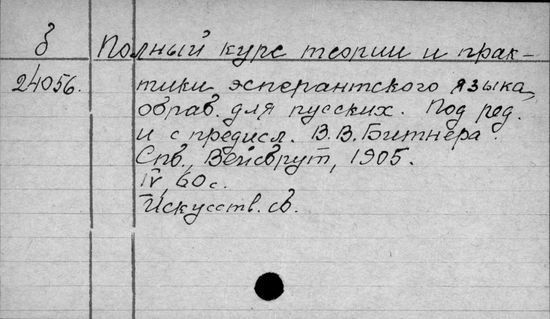 б Полный курс теории и прак-
24056. тики эсперантского языка,
обраб. для русских. Под ред.
и с предисл. В.В.Битнера.
Спб., Вейсбрут, 1905.
IV, 60 с.
Искусств. яз.